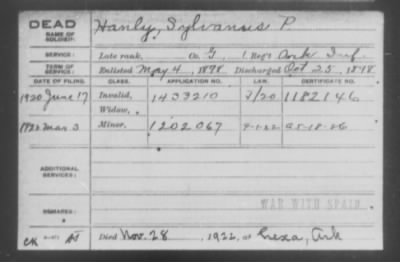 DEAD
NAME OF SOLDIER: Hanly, Sylvanus P.
SERVICE: Late rank, Co. G, 1 Reg't Ark Inf
TERM OF SERVICE: Enlisted May 4, 1898. Discharged Oct 25, 1898
DATE OF FILING. CLASS. APPLICATION NO. LAW. CERTIFICATE NO.
1920 June 17 Invalid, 1433210 3/20 1182146
Widow,
Mar 3 Minor, 1202067 9-1-22
ADDITIONAL SERVICES:
WAR WITH SPAIN
REMARKS:
CK Died Nov. 28, 1922, at Lexa, Ark